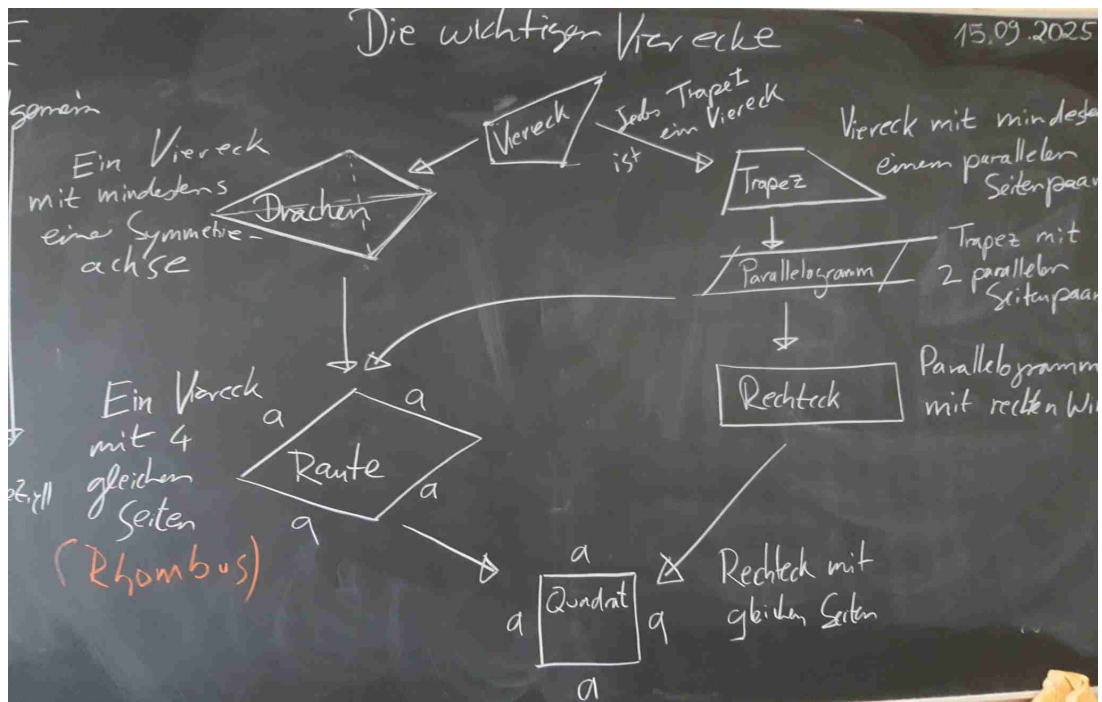 Die wichtigen Vierecke
15.09.2025
Viereck
Jedes Trapez
ist ein Viereck
Ein Viereck
mit mindestens
einer Symmetrie-
achse
Drachen
Trapez
Viereck mit mindeste
einem parallelen
Seitenpaar
Parallelogramm
Trapez mit
2 parallelen
Seitenpaar
Rechteck
Parallelogramm
mit rechten Wi
Ein Viereck
mit 4
gleichen
Seiten
(Rhombus)
a
a
Raute
a
a
a
a
Quadrat
a
a
Rechteck mit
gleichen Seiten